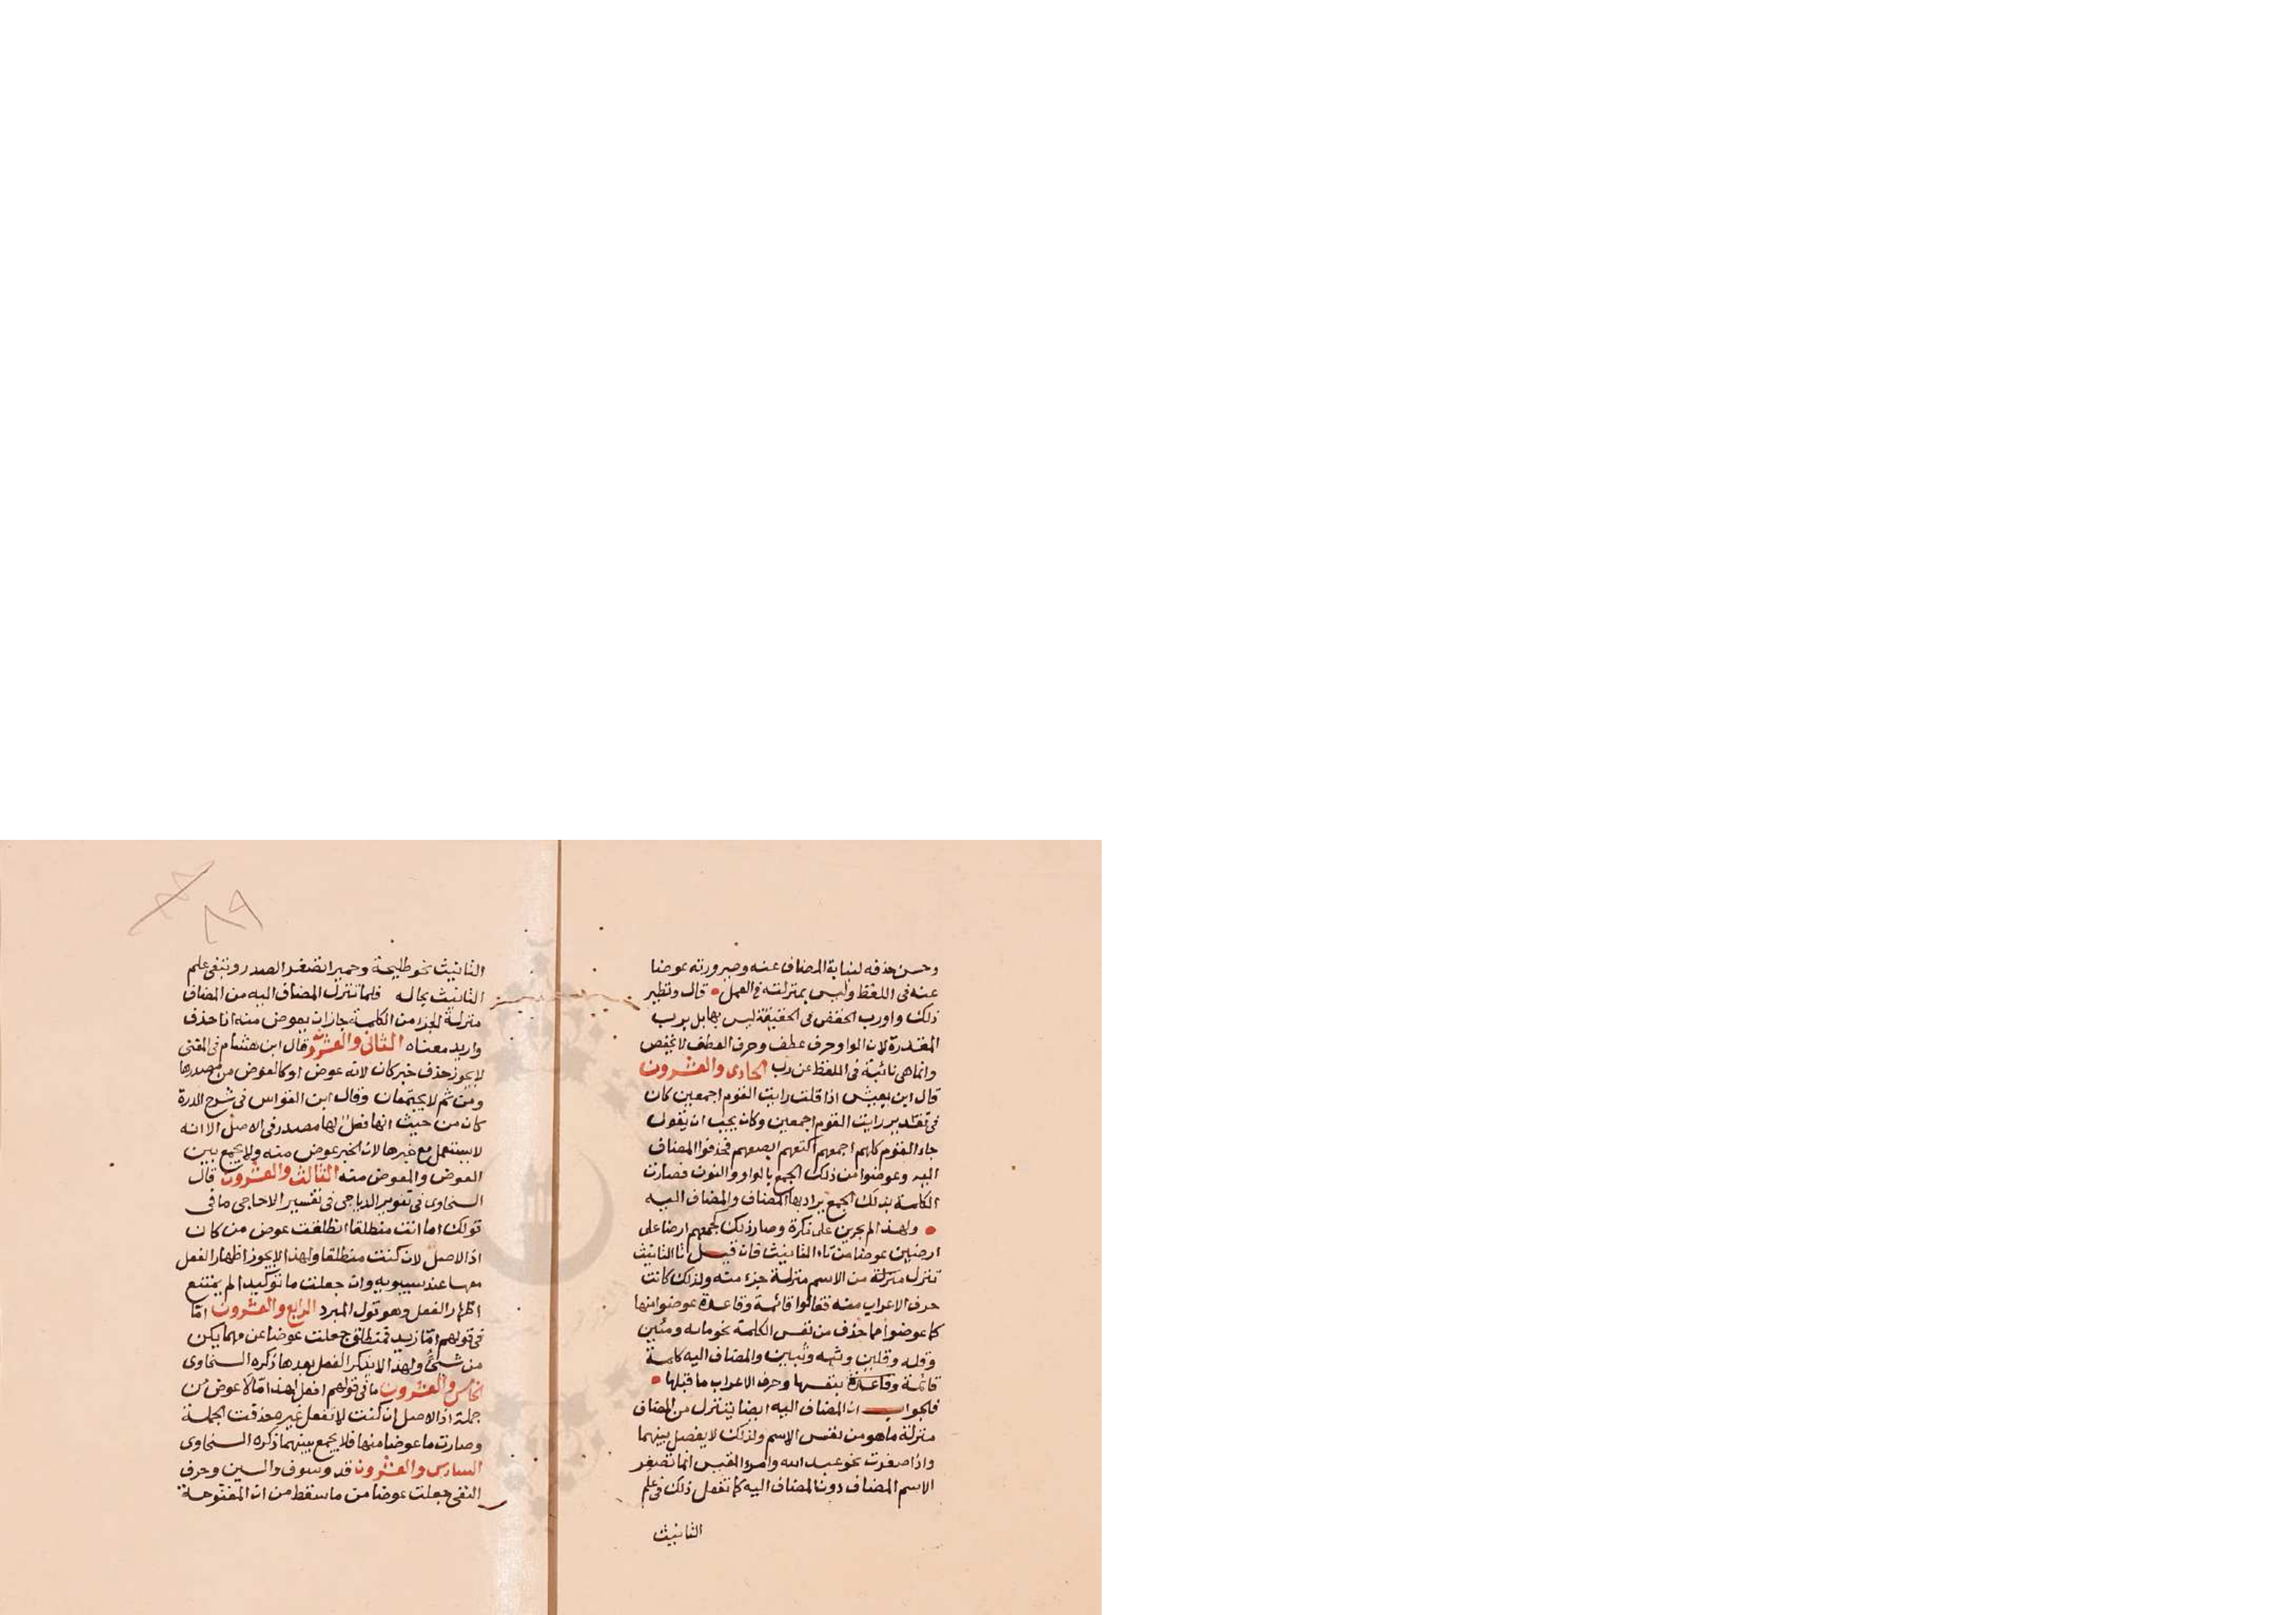 وحسن حذفه لنيابة المضاف عنه وصيرورته عوضا
عنه في اللفظ وليس بمنزلته في العمل قال ونظير
ذلك واو رب الخفض في الحقيقة ليس بها بل برب
المقدرة لان الواو حرف عطف وحرف العطف لا يخفض
وانما هي نائبة في اللفظ عن رب الحادي والعشرون
قال ابن يعيش اذا قلت رايت القوم اجمعين كان
في تقدير رايت القوم اجمعين وكان يجب ان يقول
جاء القوم كلهم اجمعهم اكتعهم ابصعهم فحذفوا المضاف
اليه وعوضوا من ذلك الجمع بالواو والنون فصارت
الكلمة بذلك الجمع يراد بها المضاف والمضاف اليه
ولهذا لم يجرين على نكرة وصار ذلك كجمعهم ارضا على
ارضين عوضا من تاء التانيث فان قيل تا التانيث
تنزل منزلة من الاسم منزلة جزء منه ولذلك كانت
حرف الاعراب منه فقالوا قائمة وقاعدة عوضوا منها
كما عوضوا مما حذف من نفس الكلمة نحو مايه ومئين
وقله وقلين وثبه وثبين والمضاف اليه كلمة
قائمة وقاعدة بنفسها وحرف الاعراب ما قبلها
فالجواب ان المضاف اليه ايضا يتنزل من المضاف
منزلة ما هو من نفس الاسم ولذلك لا يفصل بينهما
واذا صغرت نحو عبد الله وامرء القيس انما تصغر
الاسم المضاف دون المضاف اليه كما تفعل ذلك في علم
التانيث
٨٩
التانيث نحو طليحة وحميراء تصغر الصدر وتبقي علم
التانيث بحاله فلما تنزل المضاف اليه من المضاف
منزلة الجزء من الكلمة جاز ان يعوض منه اذا حذف
واريد معناه الثاني والعشرون قال ابن هشام في المغني
لا يجوز حذف خبر كان لانه عوض او كالعوض من مصدرها
ومن ثم لا يجتمعان وقال ابن القواس في شرح الدرة
كان من حيث انها فعل لها مصدر في الاصل الا انه
لا يستعمل مع خبرها لان الخبر عوض منه ولا يجمع بين
العوض والمعوض منه الثالث والعشرون قال
السخاوي في تنوير الدياجي في تفسير الاحاجي ما في
قولك اما انت منطلقا انطلقت عوض من كان
اذ الاصل لان كنت منطلقا ولهذا لا يجوز اظهار الفعل
معها عند سيبويه وان جعلت ما توكيدا لم يمتنع
اظهار الفعل وهو قول المبرد الرابع والعشرون اما
في قولهم اما زيد فمنطلق جعلت عوضا عن مهما يكن
من شيء ولهذا لا يذكر الفعل بعدها ذكره السخاوي
الخامس والعشرون ما في قولهم افعل هذا امالا عوض من
جملة اذ الاصل ان كنت لا تفعل غيره حذفت الجملة
وصارت ما عوضا منها فلا يجمع بينهما ذكره السخاوي
السادس والعشرون قد وسوف والسين وحرف
النفي جعلت عوضا من ما سقط من ان المفتوحة